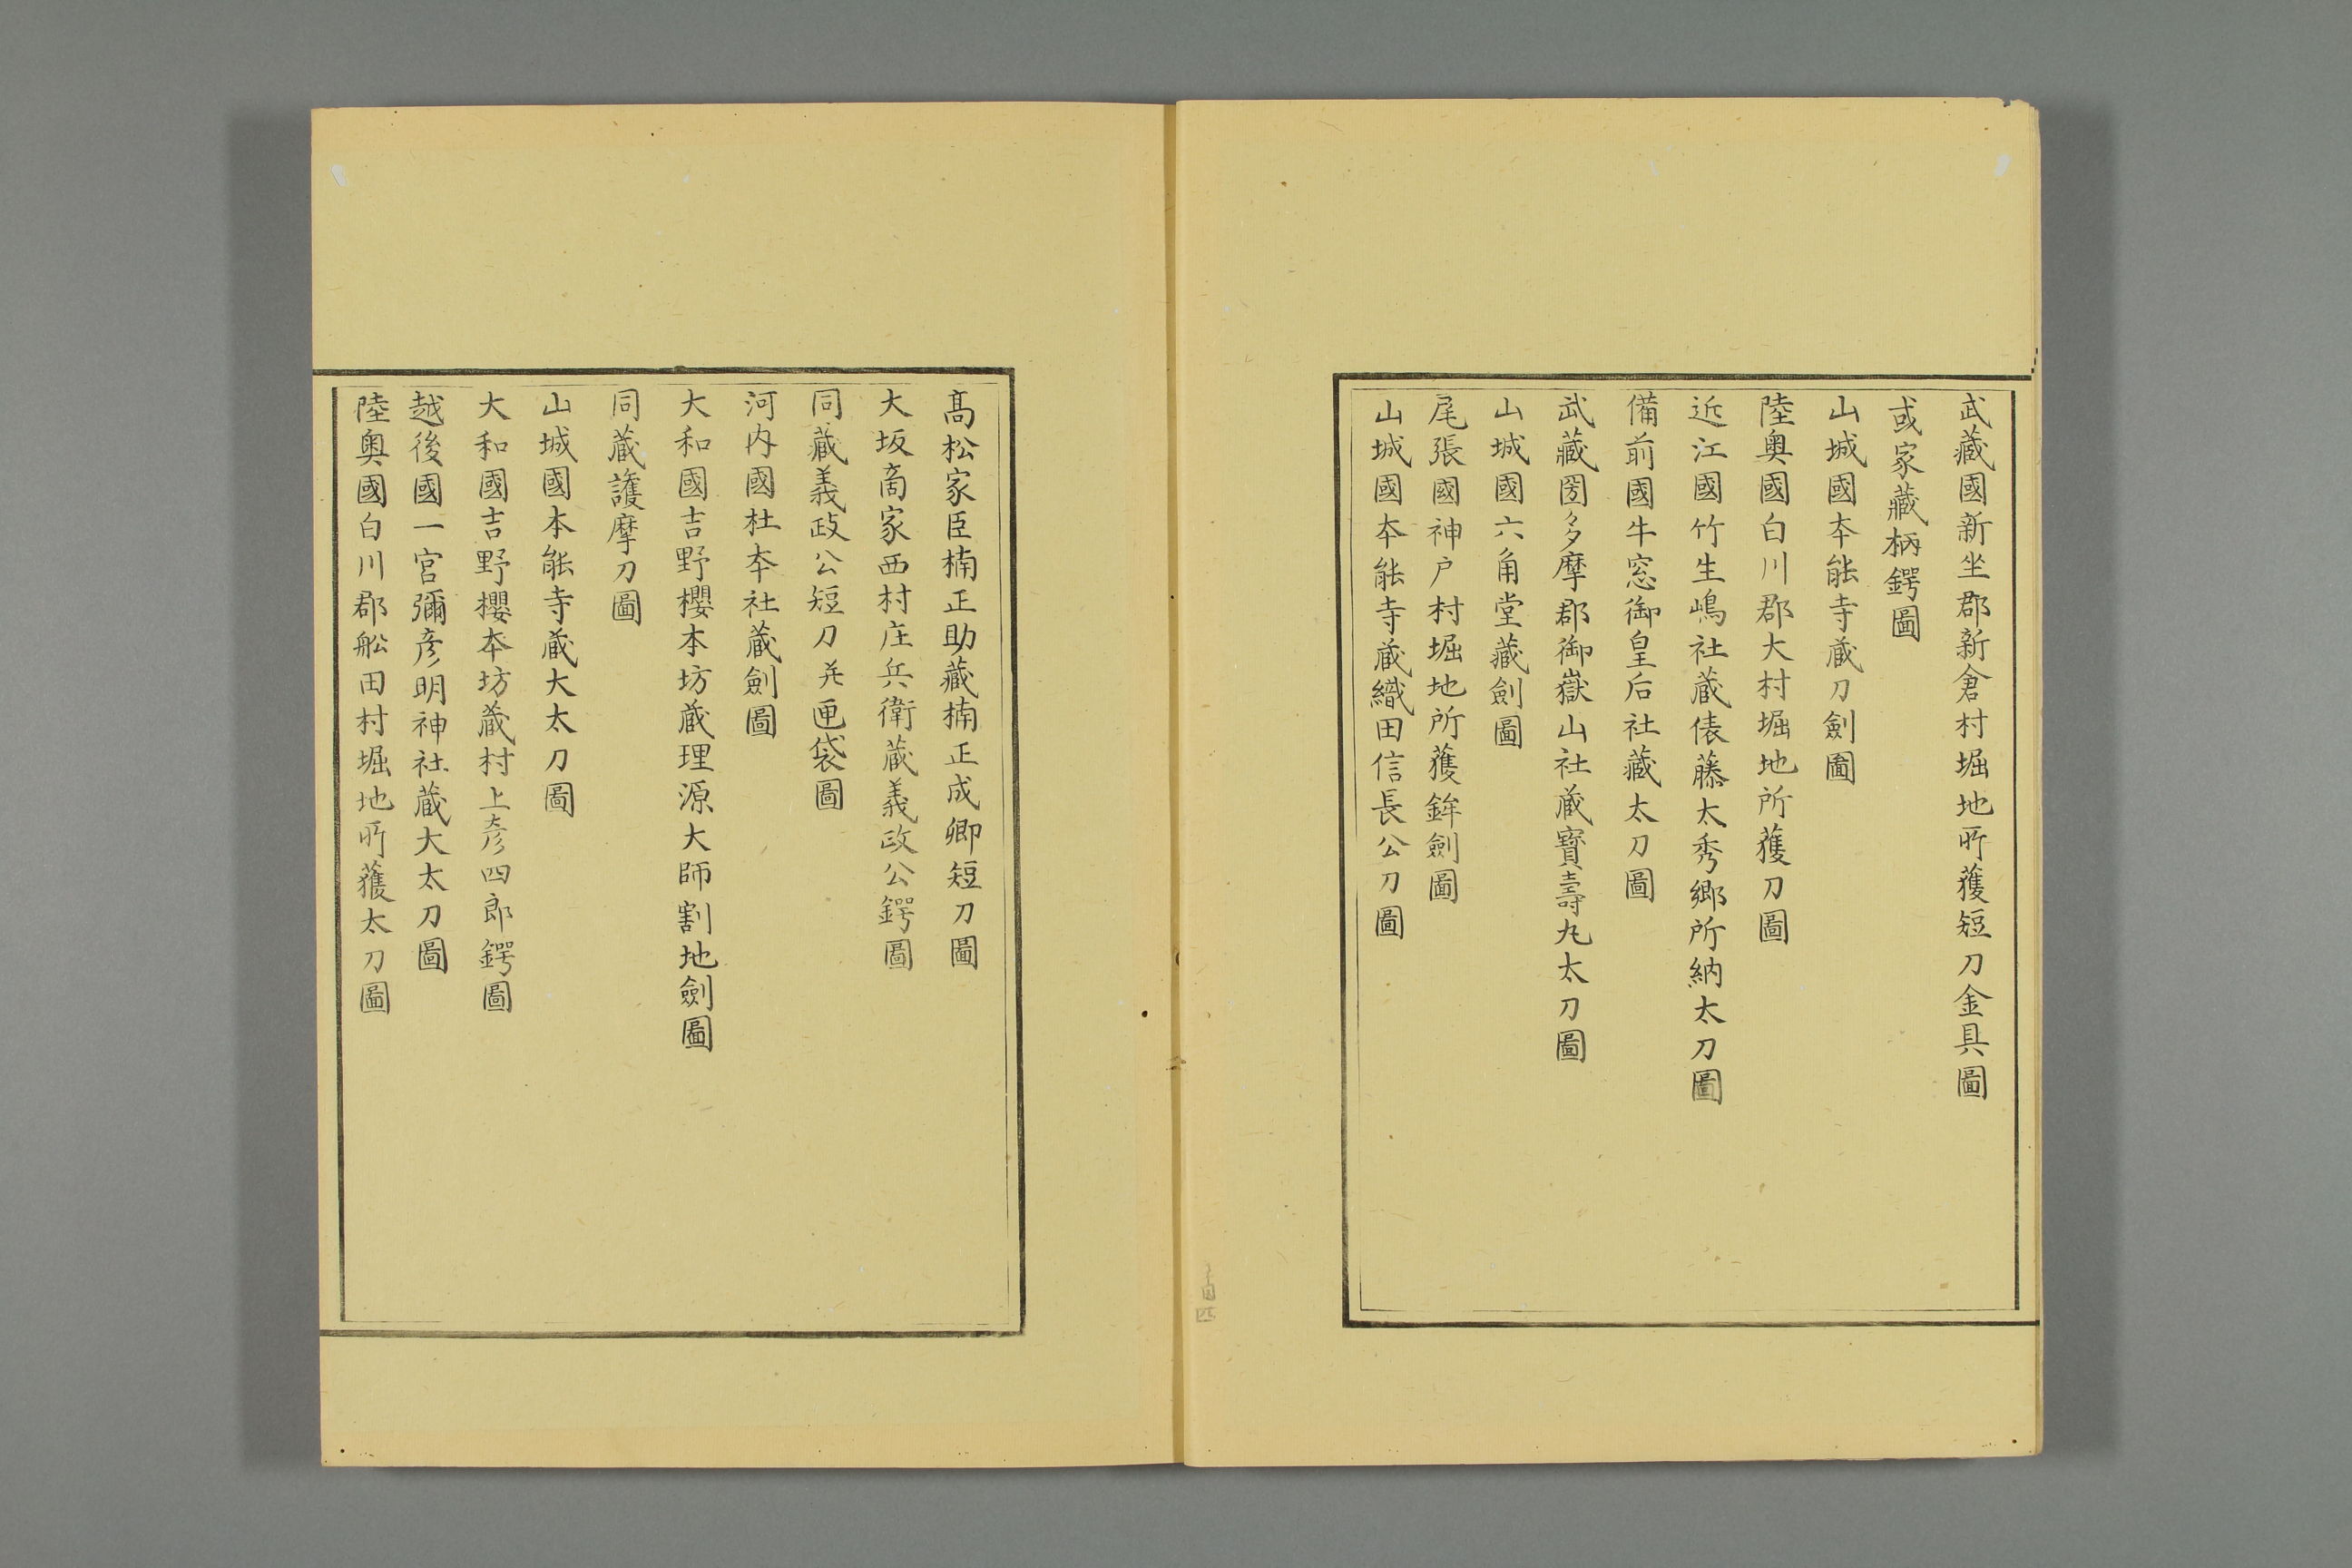 武藏國新坐郡新倉村堀地所獲短刀金具圖
或家藏柄鍔圖
山城國夲能寺蔵刀劍圖
陸奥國白川郡大村堀地所獲刀圖
近江國竹生嶋社蔵俵藤太秀郷所納太刀圖
備前國牛窓御皇后社藏太刀圖
武藏圀多摩郡御嶽山社蔵寳壽丸太刀圖
山城國六角堂藏劍圖
尾張國神戸村堀地所獲鉾劍圖
山城國夲能寺蔵織田信長公刀圖
髙松家臣楠正助藏楠正成卿短刀圖
大坂啇家西村庄兵衛蔵義政公鍔圖
同藏義政公短刀并匣袋圖
河内國杜夲社蔵劍圖
大和國吉野櫻本坊蔵理源大師割地劍圖
同蔵護摩刀圖
山城國本能寺蔵大太刀圖
大和國吉野櫻夲坊蔵村上彦四郎鍔圖
越後國一宮彌彦明神社蔵大太刀圖
陸奥國白川郡舩田村堀地所獲太刀圖